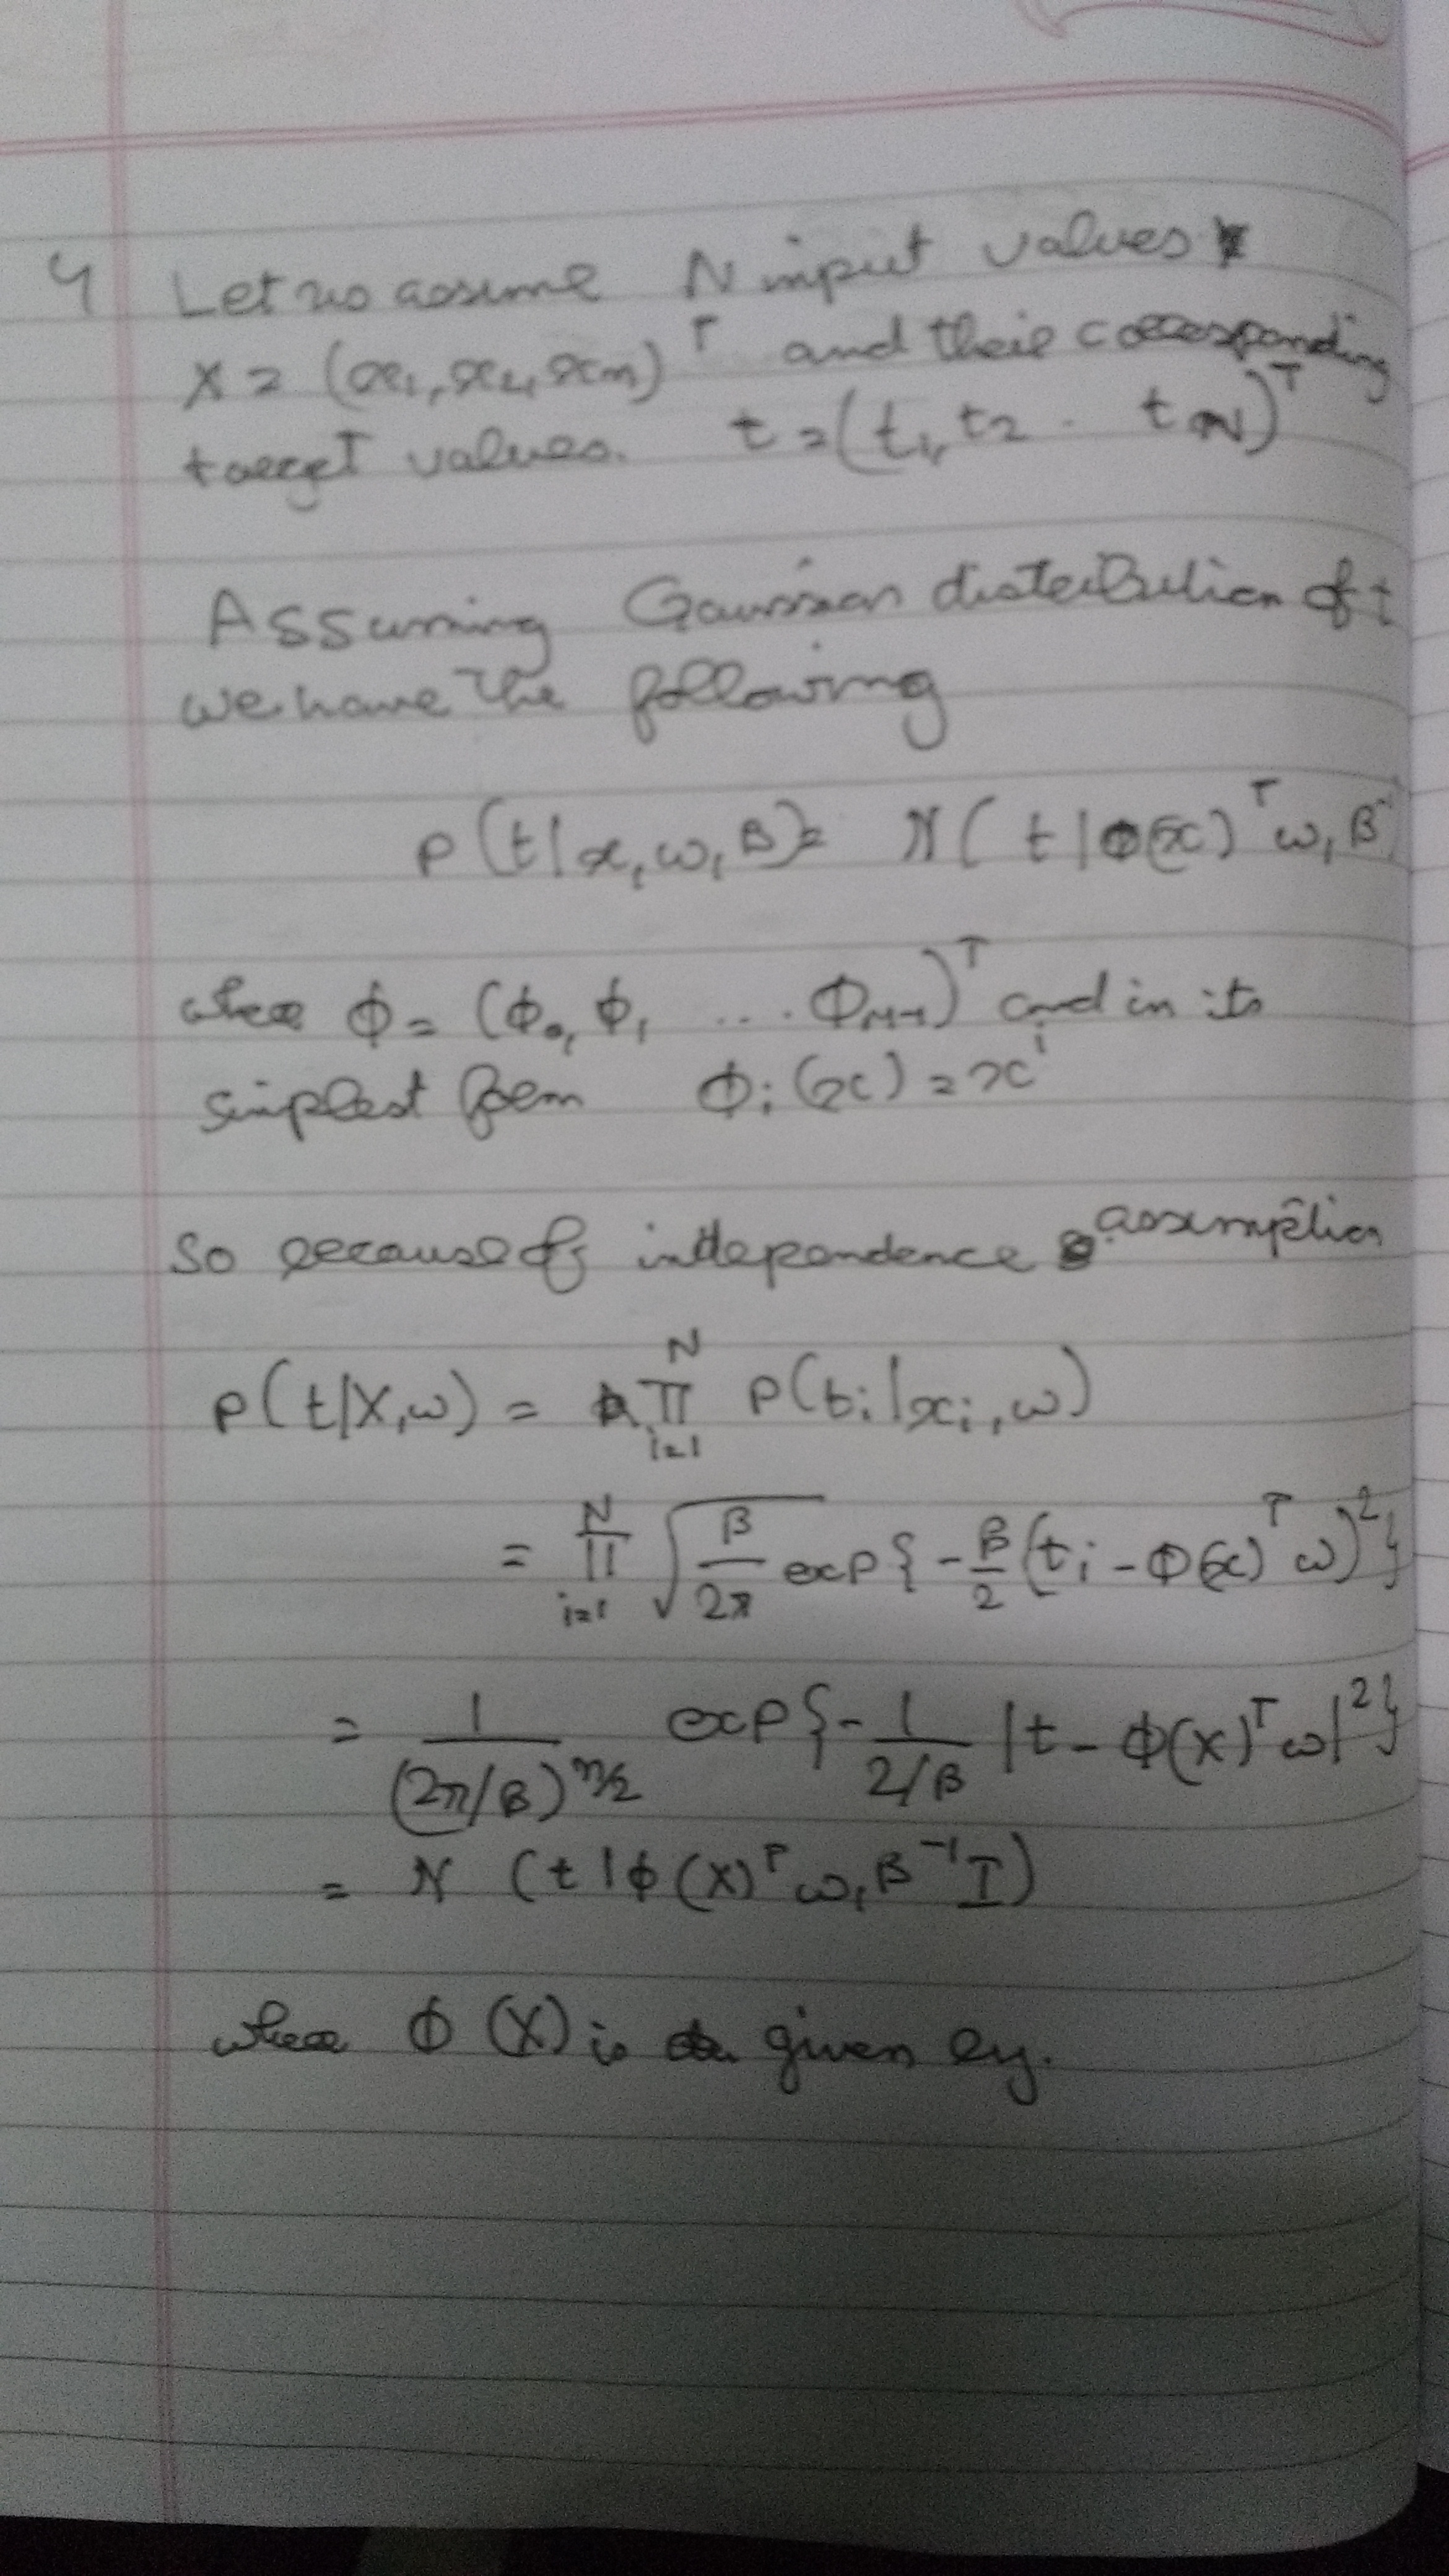 4 Let us assume N input values
X = (x1, x2, xn)^T and their corresponding
target values. t = (t1, t2 . tN)^T
Assuming Gaussian distribution of t
we have the following
P(t|x, ω, β) = N(t|Φ(x)^T ω, β^-
where ϕ = (ϕ0, ϕ1 ... ΦM-1)^T and in its
simplest form ϕi(x) = x^i
So because of independence assumption
P(t|X, ω) = ∏_{i=1}^{N} P(ti|xi, ω)
= ∏_{i=1}^{N} √(β/2π) exp{-β/2 (ti - Φ(x)^T ω)^2}
= 1/(2π/β)^{n/2} exp{-1/(2/β) |t - ϕ(X)^T ω|^2}
= N (t|ϕ(X)^T ω, β^-1 I)
where ϕ (X) is given by.